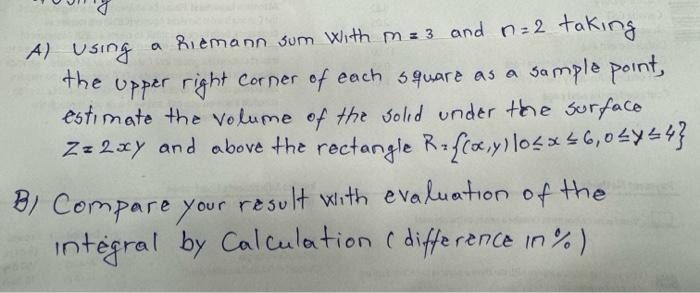 A) Using a Riemann sum With m = 3 and n = 2 taking
the upper right corner of each square as a sample point,
estimate the volume of the solid under the surface
Z = 2xy and above the rectangle R = {(x,y) | 0 ≤ x ≤ 6, 0 ≤ y ≤ 4}
B) Compare your result with evaluation of the
integral by Calculation (difference in %)